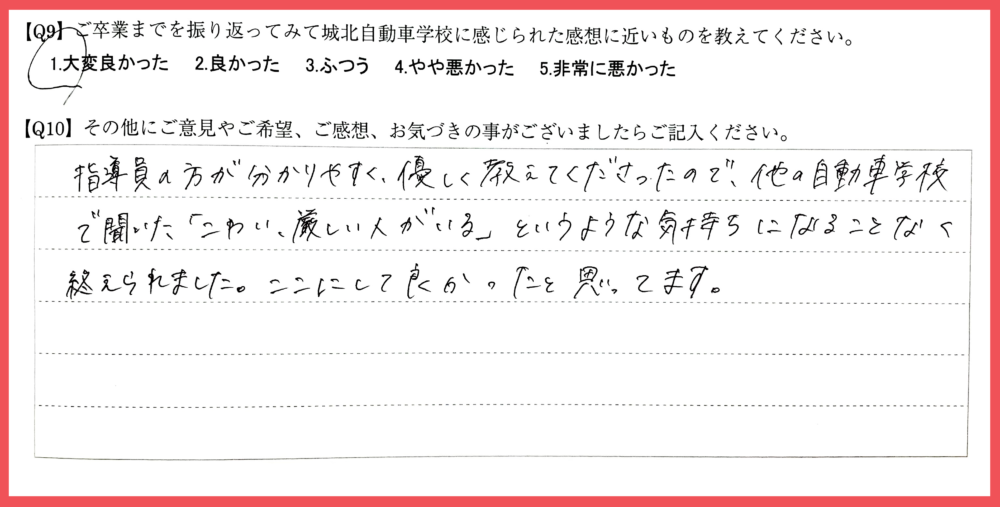 【Q9】ご卒業までを振り返ってみて城北自動車学校に感じられた感想に近いものを教えてください。
1.大変良かった 2.良かった 3.ふつう 4.やや悪かった 5.非常に悪かった
【Q10】その他にご意見やご希望、ご感想、お気づきの事がございましたらご記入ください。
指導員の方が分かりやすく、優しく教えてくださったので、他の自動車学校
で聞いた「こわい、厳しい人がいる」というような気持ちになることなく
終えられました。ここにして良かったと思ってます。